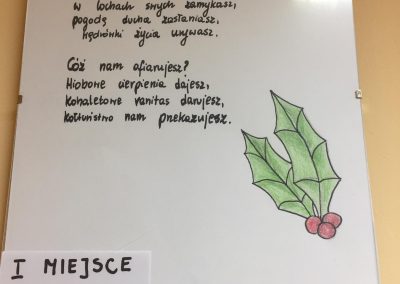 w lochach swych zamykasz,
pogodę ducha zasłaniasz,
wędrówki życia urywasz.
Cóż nam ofiarujesz?
Hiobowe cierpienia dajesz,
Kohaletowe vanitas darujesz,
kołtuństwo nam przekazujesz.
I MIEJSCE